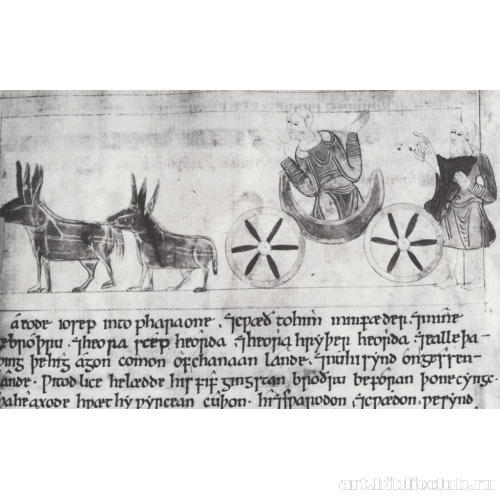 a eode iosep into pharaone . ⁊ cwæð to him min fæder . ⁊ mine
gebroðru . ⁊ heora scep heorda . ⁊ heora hryþer heorda . ⁊ ealle þa
þing þe hig agon comon of chanaan lande . ⁊ nu hi synd on gessen
lande . Witodlice he lædde his fif gingstan broðru beforan þone cyngc .
þa he axode hwæt hy wyrcean cuþon . hi ⁊swarodon . ⁊ cwædon . we synd
art.biblioclub.ru